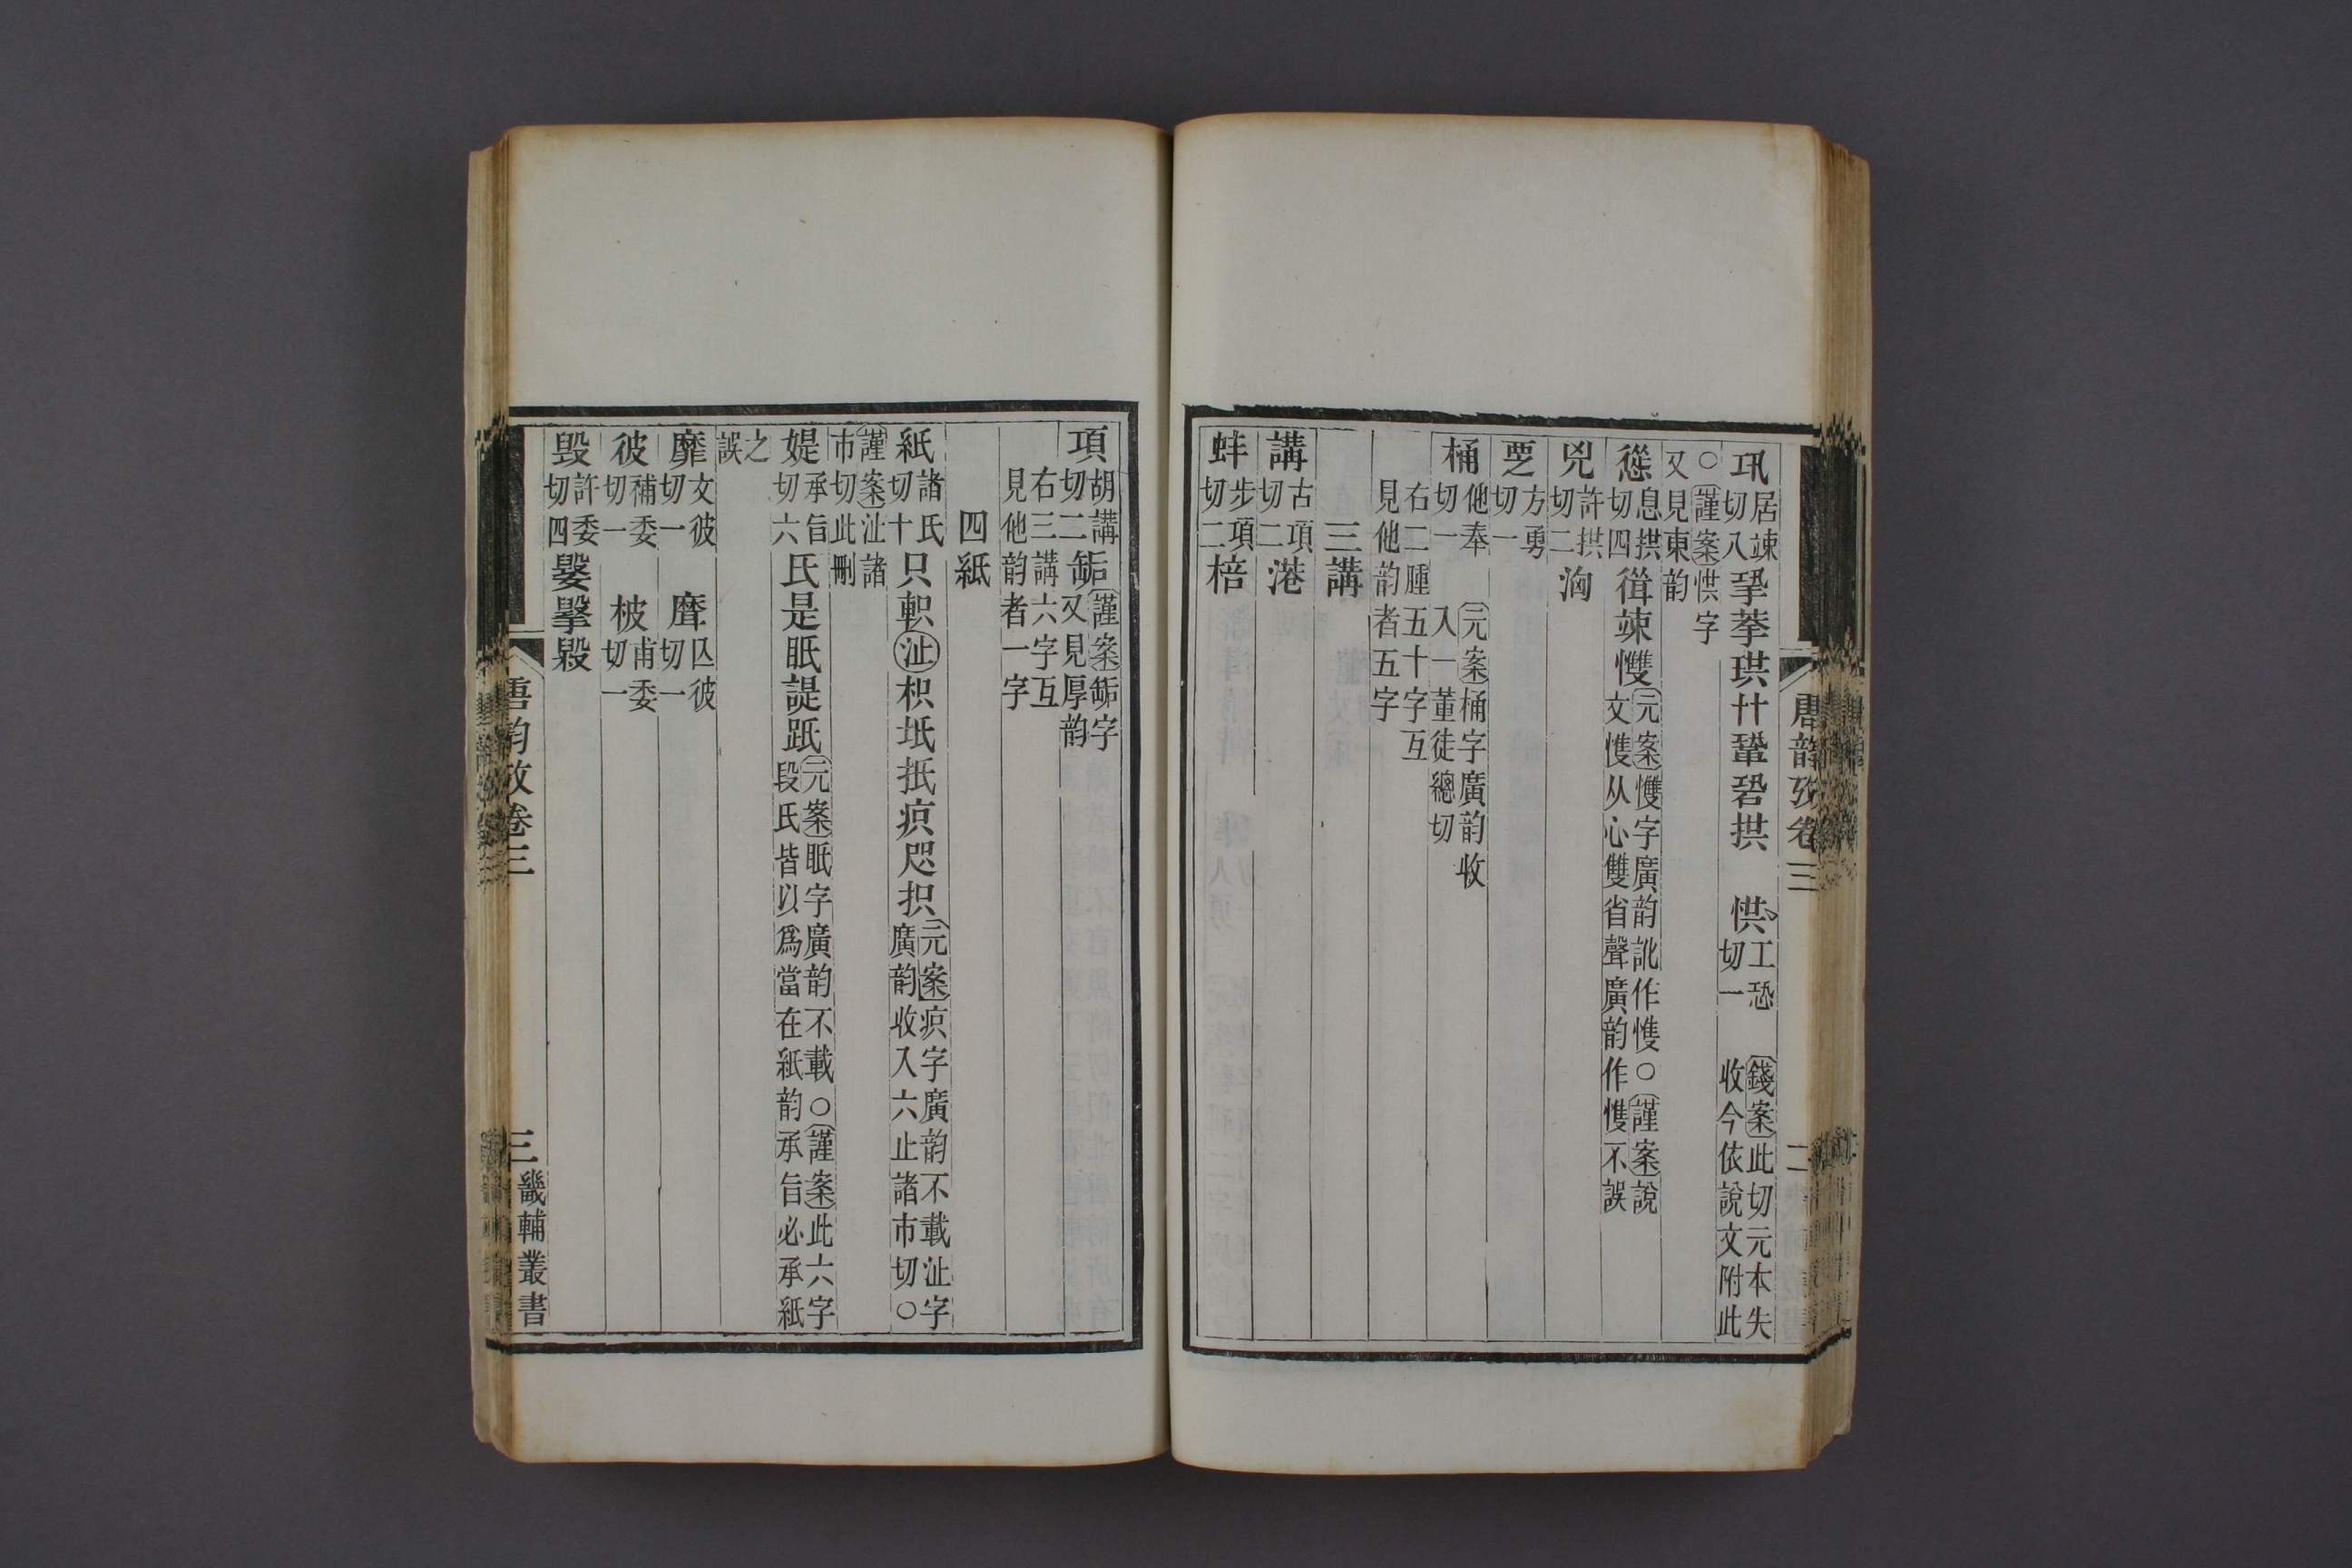 巩居竦切八巩㧬拲珙廾鞏碧拱 㤨工恐切一 錢案此切元本失收今依說文附此
○謹案㤨字又見東韵
慫息拱切四𢔩竦㩳元案㩳字廣韵訛作愯○謹案說文愯从心雙省聲廣韵作愯不誤
兇許拱切二洶
覂方勇切一
桶他奉切一 元案桶字廣韵收入一董徒總切
右二腫五十字互見他韵者五字
三講
講古項切二港
蚌步項切二棓
唐韵攷卷三
二
項胡講切二缿謹案缿字又見厚韵
右三講六字互見他韵者一字
四紙
紙諸氏切十只軹沚枳坻抵疻咫抧元案疻字廣韵不載沚字廣韵收入六止諸市切○
謹案沚諸市切此刪
媞承旨切六氏是眡諟跾元案眡字廣韵不載○謹案此六字段氏皆以爲當在紙韵承旨必承紙
之誤
靡文彼切一 䃺囚彼切一
彼補委切一 柀甫委切一
毁許委切四嫛擊毇
唐韵攷卷三
三
畿輔叢書